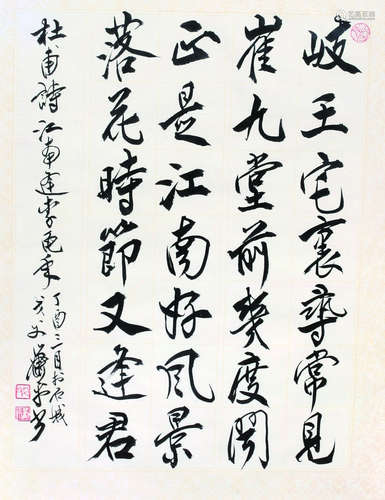 岐王宅裏尋常見
崔九堂前幾度聞
正是江南好風景
落花時節又逢君
杜甫詩江南逢李龜年
丁酉